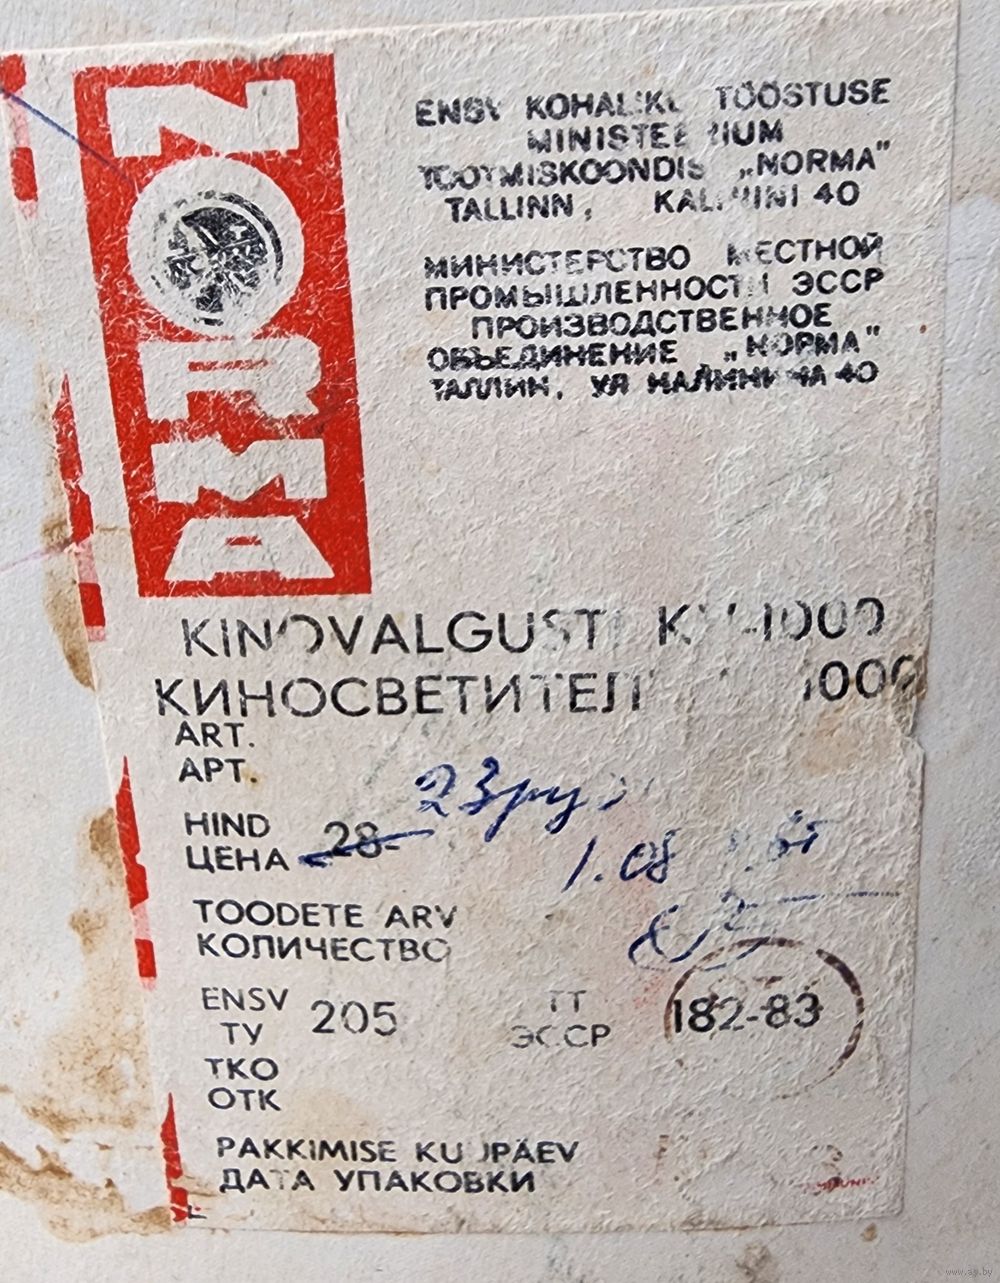 NORMA
ENSV KOHALIKU TÖÖSTUSE
MINISTEERIUM
TOOTMISKOONDIS „NORMA"
TALLINN, KALININI 40
МИНИСТЕРСТВО МЕСТНОЙ
ПРОМЫШЛЕННОСТИ ЭССР
ПРОИЗВОДСТВЕННОЕ
ОБЪЕДИНЕНИЕ „НОРМА"
ТАЛЛИН, УЛ КАЛИНИНА 40
KINOVALGUSTI 1000
КИНОСВЕТИТЕЛ 1000
ART.
АРТ.
23 руб
HIND
ЦЕНА 28-
1.08
TOODETE ARV
КОЛИЧЕСТВО
ENSV 205 TT 182-83
ТУ ЭССР
TKO
ОТК
PAKKIMISE KUUPÄEV
ДАТА УПАКОВКИ
www.ay.by